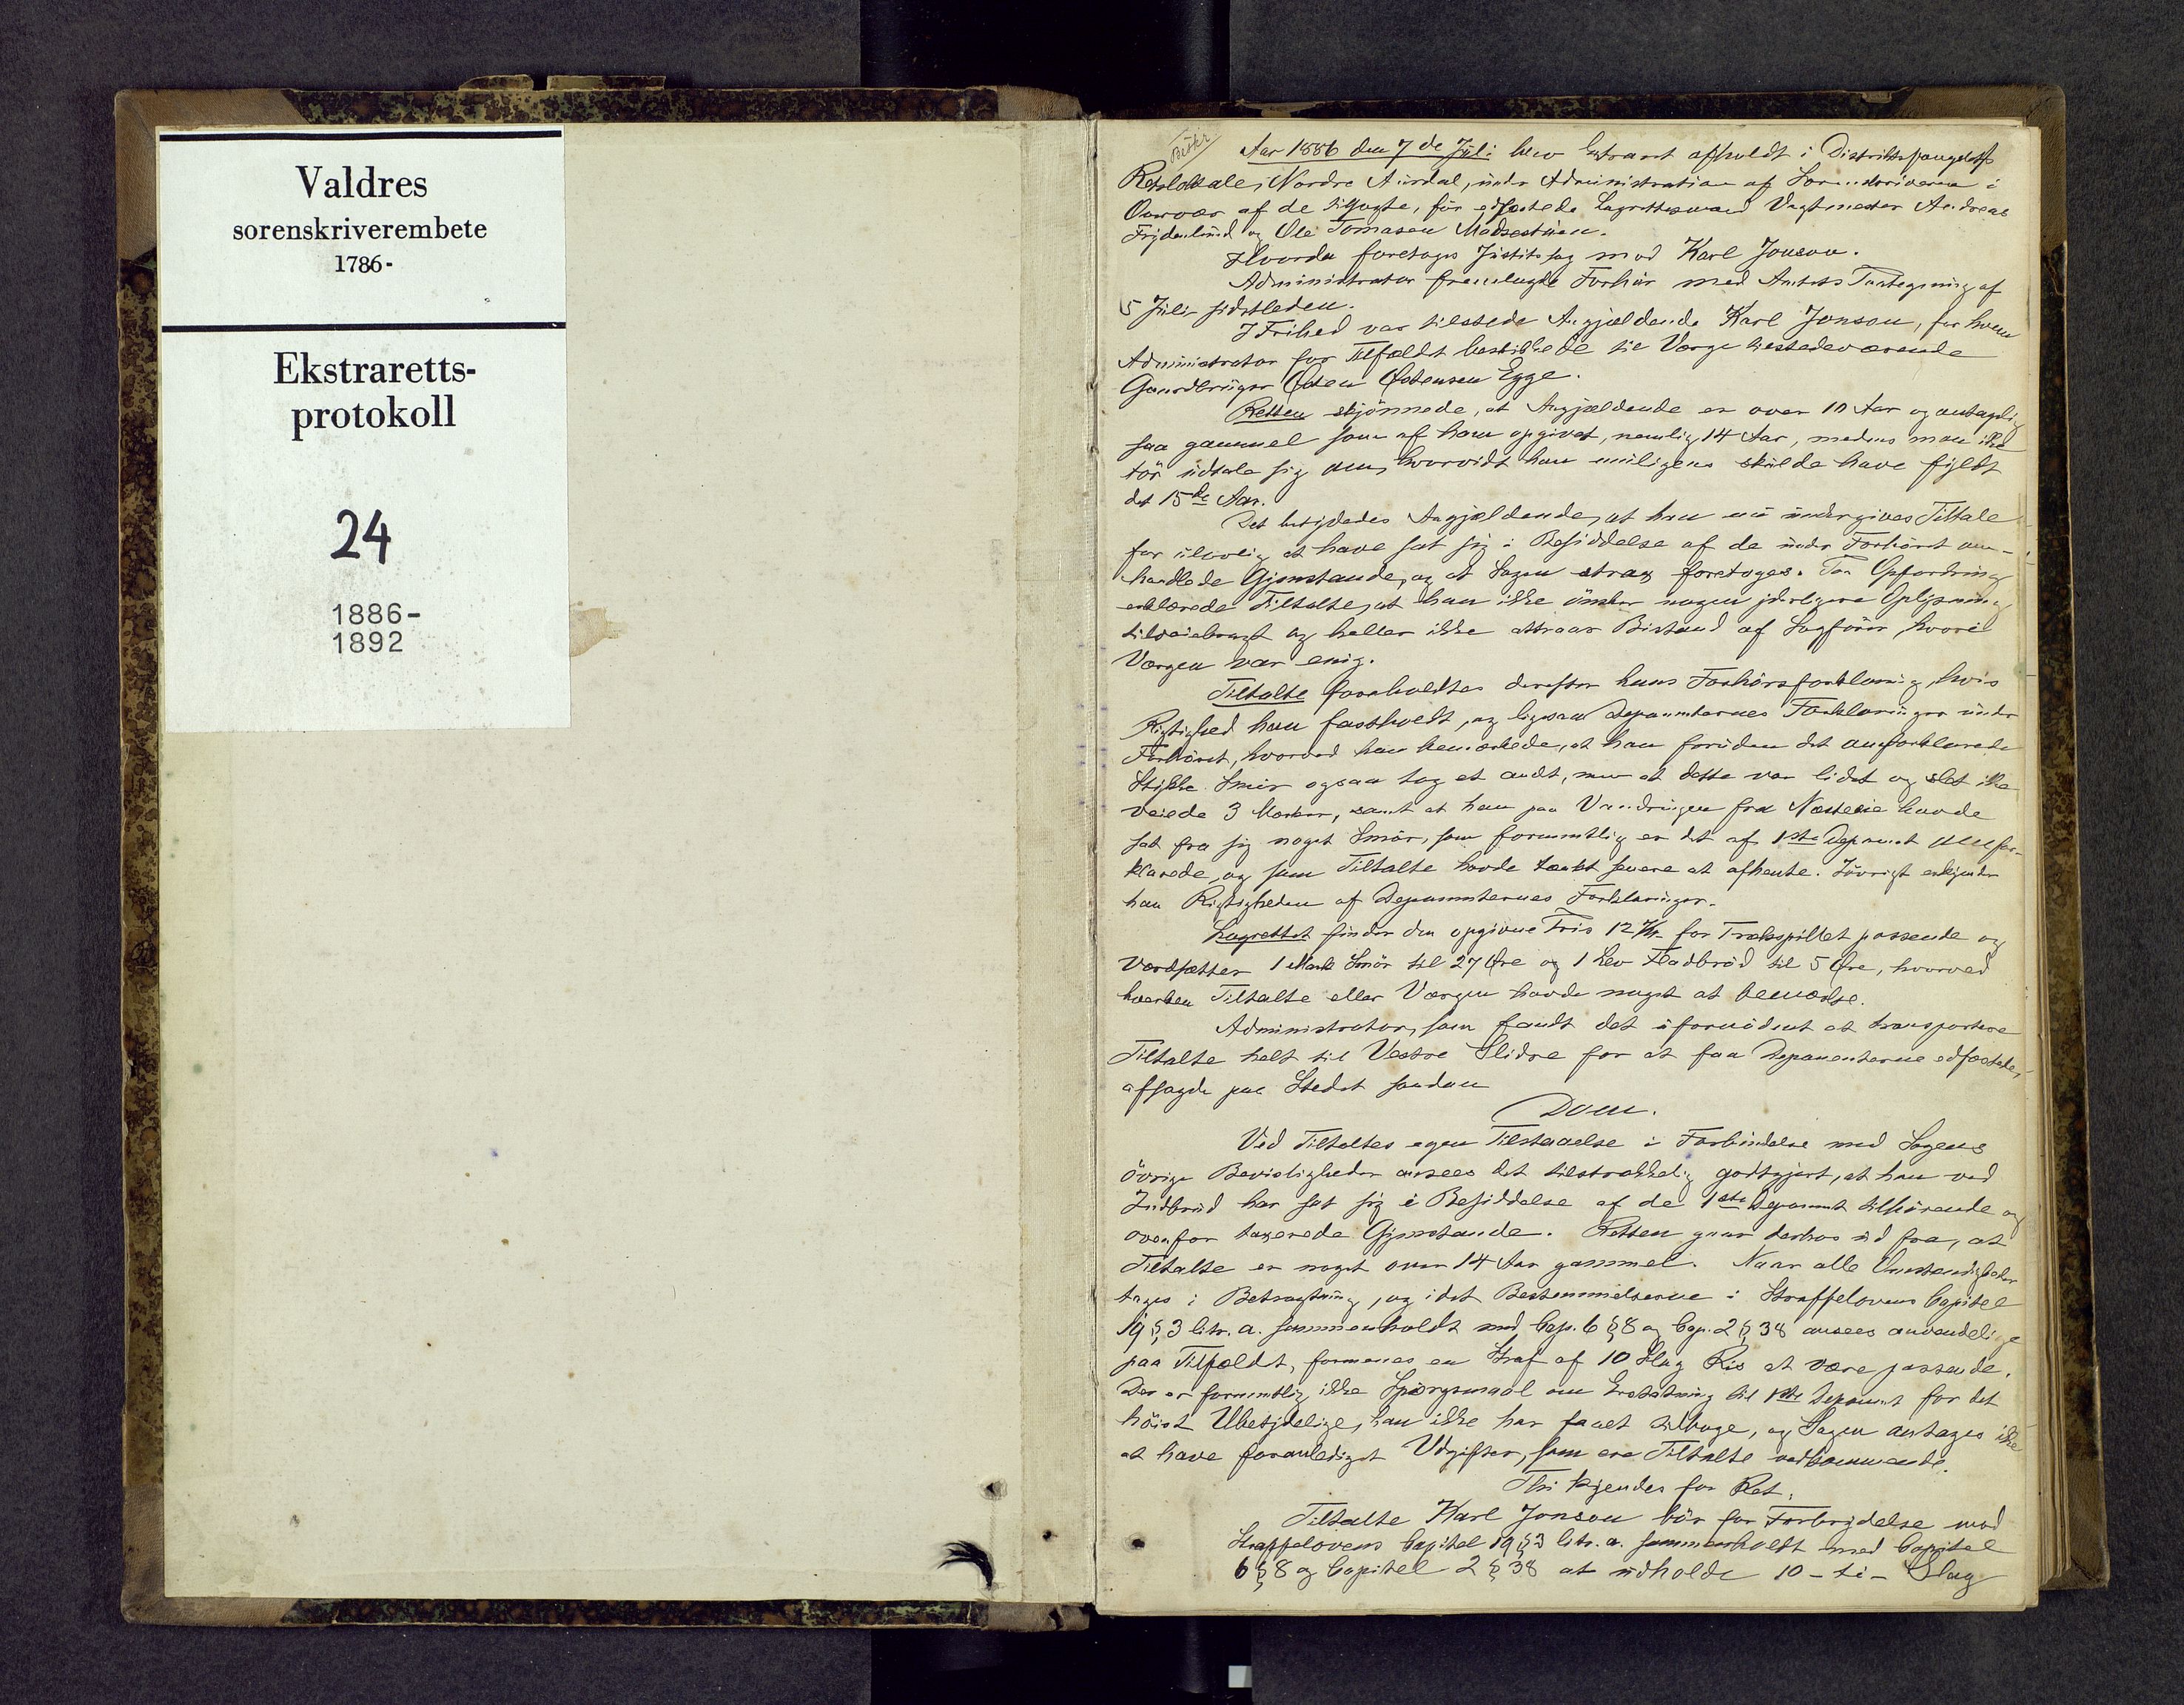 Valdres
sorenskriverembete
1786-
Ekstraretts-
protokoll
24
1886-
1892
Aar 1886 den 7de Juli blev Extraret afholdt i Distriktsfængslets
Retslokale i Nordre Aurdal, under Administration af Sorenskriveren i
Overvær af de tilsagte, før edfæstede Lagrettesmænd Vagtmester Andreas
Frydenlund og Ole Tomasen Madsestuen.
Hvorda foretoges Justitssag mod Karl Jonson.
Administrator fremlagde Forhör med Amtets Paategning af
5 Juli sidstleden.
I Frihed var tilstede Angjældende Karl Jonson, for hvem
Administrator for Tilfældet beskikkede til Værge tilstedeværende
Gaardbruger Östen Östensen Egge.
Retten skjönnede, at Angjældende er over 10 Aar og antagelig
saa gammel som af ham opgivet, nemlig 14 Aar, medens man ikke
tör udtale sig om, hvorvidt han muligens skulde have fyldt
det 15de Aar.
Det betydedes Angjældende, at han nu undergives Tiltale
for ulovlig at have sat sig i Besiddelse af de under Forhöret om-
handlede Gjenstande, og at Sagen strax foretoges. Paa Opfordring
erklærede Tiltalte, at han ikke önsker nogen yderligere Oplysning
tilveiebragt og heller ikke attraar Bistand af Sagförer, hvori
Værgen var enig.
Tiltalte foreholdtes derefter hans Forhörsforklaring, hvis
Rigtighed han fastholdt, og ligesaa Deponenternes Forklaringer under
Forhöret, hvorved han bemærkede, at han foruden det omforklarede
Stykke Smör ogsaa tog et andt, men at dette var lidet og slet ikke
veiede 3 Marker, samt at han paa Vandringen fra havde
sat fra sig noget Smör, som formentlig er det af 1ste Deponent omfor-
klarede, og som Tiltalte havde tænkt senere at afhente. Iövrigt erkjender
han Rigtigheden af Deponenternes Forklaringer.
Lagrettet finder den opgivne Pris 12 Kr. for Trækspillet passende og
værdsætter 1 Mark Smör til 27 Öre og 1 Lev Fladbröd til 5 Öre, hvorved
hverken Tiltalte eller Værgen havde noget at bemærke.
Administrator, som fandt det ufornödent at transportere
Tiltalte helt til Vestre Slidre for at faa Deponenterne edfæstede,
afsagde paa Stedet saadan
Dom.
Ved Tiltaltes egen Tilstaaelse i Forbindelse med Sagens
övrige Bevisligheder ansees det tilstrækkelig godtgjort, at han ved
Indbrud har sat sig i Besiddelse af de 1ste Deponent tilhörende og
ovenfor taxerede Gjenstande. Retten gaar derhos ud fra, at
Tiltalte er noget over 14 Aar gammel. Naar alle Omstændigheder
tages i Betragtning, og idet Bestemmelserne i Straffelovens Capitel
19 § 3 litr. a. sammenholdt med Cap. 6 § 8 og Cap. 2 § 38 ansees anvendelige
paa Tilfældet, formenes en Straf af 10 Slag Ris at være passende.
Der er formentlig ikke Spörgsmaal om Erstatning til 1ste Deponent for det
höist Ubetydelige, han ikke har faaet tilbage, og Sagen antages ikke
at have foranlediget Udgifter, som ere Tiltalte vedkommende.
Thi kjendes for Ret:
Tiltalte Karl Jonson bör for Forbrydelse mod
Straffelovens Capitel 19 § 3 litr. a. sammenholdt med Capitel
6 § 8 og Capitel 2 § 38 at udholde 10 - ti - Slag